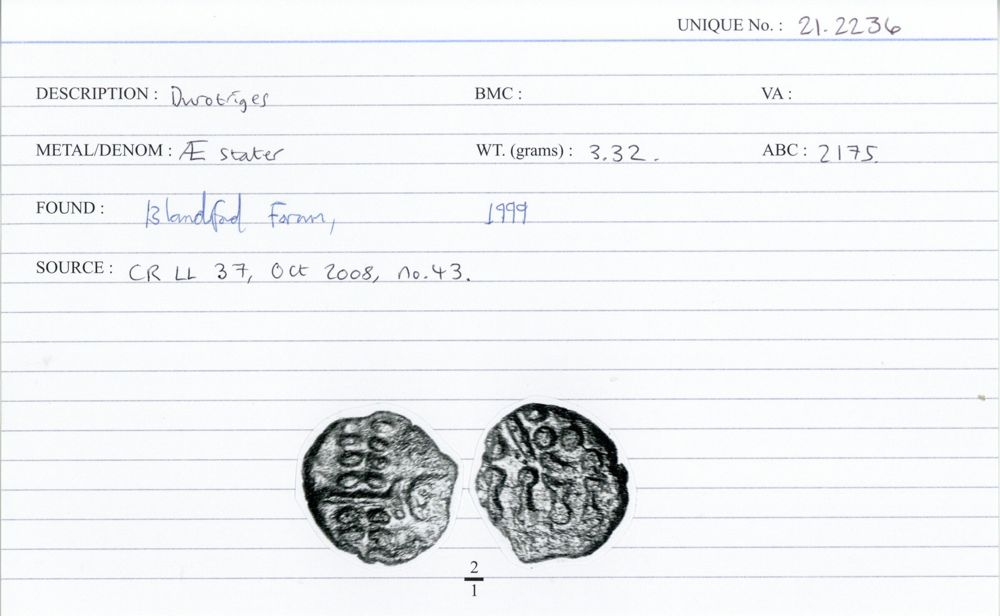 UNIQUE No. : 21.2236
DESCRIPTION : Durotriges BMC : VA :
METAL/DENOM : Æ stater WT. (grams) : 3.32. ABC : 2175.
FOUND : Blandford Forum, 1999
SOURCE : CR LL 37, Oct 2008, no.43.
2
1